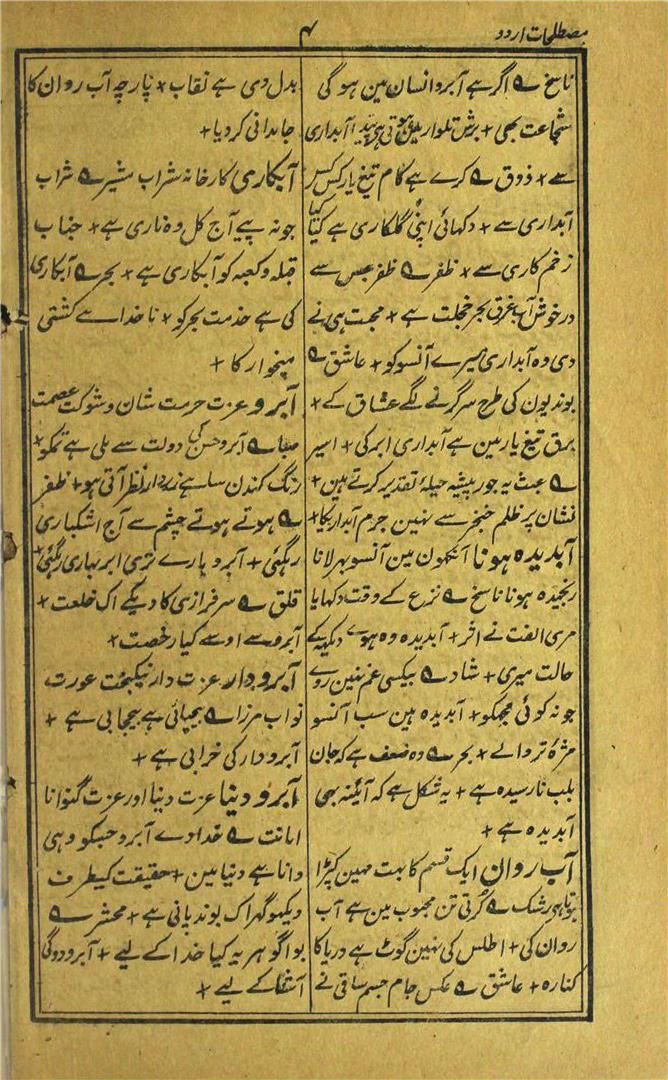 مصطلحات اردو
۴
ناسخ ؎ اگر ہے آبرو انسان مین ہو گی
شجاعت بھی + برش تلوار مین ہوتی ہی پیدا آبداری
سے × ذوق ؎ کرے ہے کام تیغ یار کس کس
آبداری سے × دکھائی اپنی گلکاری ہے کیا کیا
زخم کاری سے × ظفر ؎ ظفر جس سے
در خوش آب غرق بحر خجلت ہے × محبت ہی نے
دی وہ آبداری میرے آنسو کو + عاشق ؎
بوندیون کی طرح سر گرنے لگے عشاق کے +
برق تیغ یار مین ہے آبداری ابر کی + اسیر
؎ عبث یہ جور پیشہ حیلۂ تقدیر کرتے ہین +
نشان پر ظلم خنجر سے نہین جرم آبدار یکا +
آبدیدہ ہونا آنکھون مین آنسو بھر لانا
رنجیدہ ہونا ناسخ ؎ نزع کے وقت دکھایا
مری الفت نے اثر + آبدیدہ وہ ہوے دیکھ کے
حالت میری + شاد ؎ بیکسی غم نہین روے
جو نہ کوئی مجھکو + آبدیدہ ہین سب آنسو
مژہ تر والے × بحر ؎ وہ ضعف ہے کہ جان
بلب نا رسیدہ ہے + یہ شکل ہے کہ آئینہ بھی
آبدیدہ ہے +
آب روان ایک قسم کا بہت مہین کپڑا
ہوتا ہی رشک ؎ کرتی تن محبوب مین ہے آب
روان کی + اطلس کی نہین گوٹ ہے دریا کا
کنارہ + عاشق ؎ عکس جام جسم ساقی نے
بدل دی ہے نقاب × پارچہ آب روان کا
جامدانی کر دیا +
آبکاری کارخانہ شراب منیر ؎ شراب
جو نہ پیے آج کل وہ ناری ہے × جناب
قبلہ و کعبہ کو آبکاری ہے × بحر ؎ آبکاری
کی ہے خدمت بحر کو × ناخدا سے کشتی
میخوار کا +
آبرو عزت حرمت شان و شوکت عصمت
صبا ؎ آبرو حسن کی دولت سے ملی ہے تمکو +
رنگ کندن سا ہے زردار نظر آتی ہو + ظفر
؎ ہوتے ہوتے چشم سے آج اشکباری
رہگئی + آبرو بارے تری ابر بہاری رہگئی +
قلق ؎ سرفرازی کا دیکے اک خلعت +
آبرو سے اوسے کیا رخصت ×
آبرودار عزت دار نیکبخت عورت
نواب مرزا ؎ بیحیائی ہے بیحجابی ہے +
آبرودار کی خرابی ہے +
آبرو دینا عزت دنیا اور عزت گنوانا
امانت ؎ خدا دے آبرو جسکو وہی
دانا ہے دنیا مین + حقیقت کیطرف
دیکھو گہر اک بوند پانی ہے + محشر ؎
بوا گوہر یہ کیا خدا کے لیے + آبرو دوگی
آشنا کے لیے +